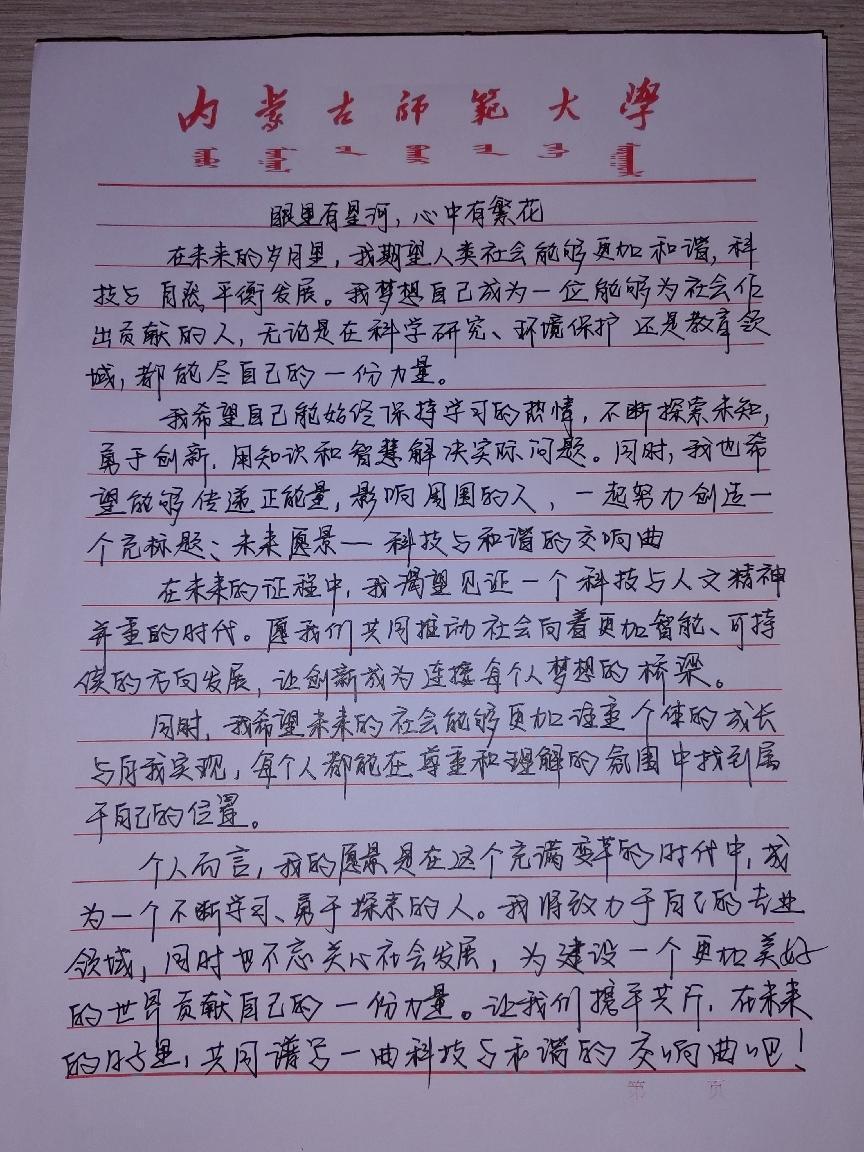 内蒙古师范大学
眼里有星河，心中有繁花
在未来的岁月里，我期望人类社会能够更加和谐，科
技与自然平衡发展。我梦想自己成为一位能够为社会作
出贡献的人，无论是在科学研究、环境保护还是教育领
域，都能尽自己的一份力量。
我希望自己能始终保持学习的热情，不断探索未知，
勇于创新，用知识和智慧解决实际问题。同时，我也希
望能够传递正能量，影响周围的人，一起努力创造一
个充标题：未来愿景—科技与和谐的交响曲
在未来的征程中，我渴望见证一个科技与人文精神
并重的时代。愿我们共同推动社会向着更加智能、可持
续的方向发展，让创新成为连接每个人梦想的桥梁。
同时，我希望未来的社会能够更加注重个体的成长
与自我实现，每个人都能在尊重和理解的氛围中找到属
于自己的位置。
个人而言，我的愿景是在这个充满变革的时代中，成
为一个不断学习、勇于探索的人。我将致力于自己的专业
领域，同时也不忘关心社会发展，为建设一个更加美好
的世界贡献自己的一份力量。让我们携手共进，在未来
的日子里，共同谱写一曲科技与和谐的交响曲吧！
第 页